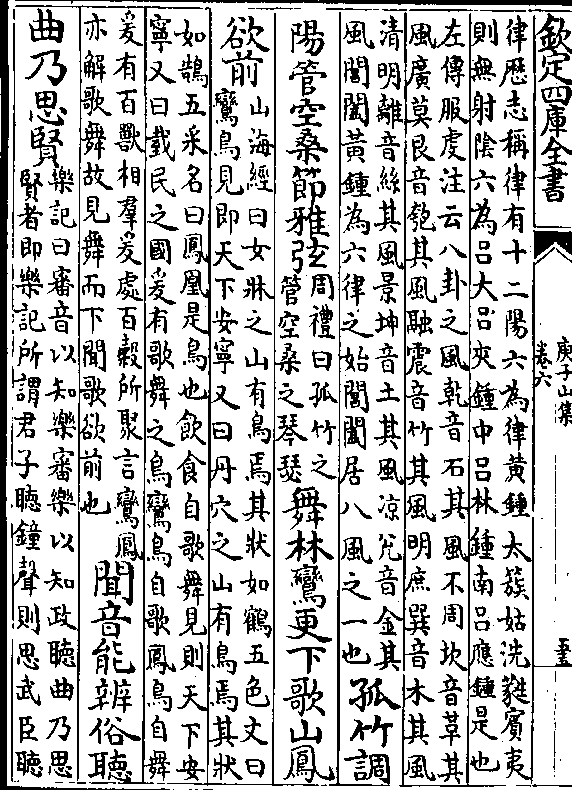 欽定四庫全書
庾子山集
卷六
律歴志稱律有十二陽六為律黃鐘太蔟姑洗蕤賓夷
則無射陰六為呂大呂夾鐘中呂林鐘南呂應鐘是也
左傳服虔注云八卦之風乾音石其風不周坎音革其
風廣莫艮音匏其風融震音竹其風明庶巽音木其風
清明離音絲其風景坤音土其風凉兌音金其
風閶闔黃鍾為六律之始閶闔居八風之一也
孤竹調
陽管空桑節雅弦
周禮曰孤竹之
管空桑之琴瑟
舞林鸞更下歌山鳳
欲前
山海經曰女牀之山有鳥焉其狀如鶴五色文曰
鸞鳥見即天下安寧又曰丹穴之山有鳥焉其狀
如鵠五采名曰鳳凰是鳥也飲食自歌舞見則天下安
寧又曰臷民之國爰有歌舞之鳥鸞鳥自歌鳳鳥自舞
爰有百獸相羣爰處百穀所聚言鸞鳳
亦解歌舞故見舞而下聞歌欲前也
聞音能辨俗聽
曲乃思賢
樂記曰審音以知樂審樂以知政聽曲乃思
賢者即樂記所謂君子聽鐘聲則思武臣聽